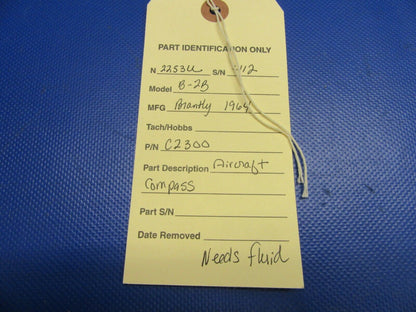 PART IDENTIFICATION ONLY
N 2253U S/N 412
Model B-2B
MFG Brantly 1964
Tach/Hobbs
P/N C2300
Part Description Aircraft
Compass
Part S/N
Date Removed
Needs fluid